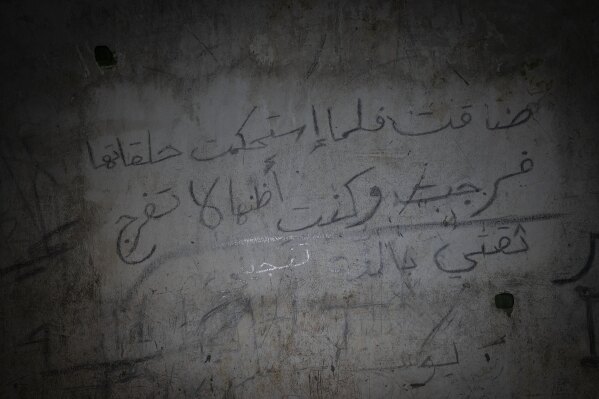 ضاقت فلما إستحكمت حلقاتها
فرجت وكنت أظنها لا تفرج
ثقتي بالله